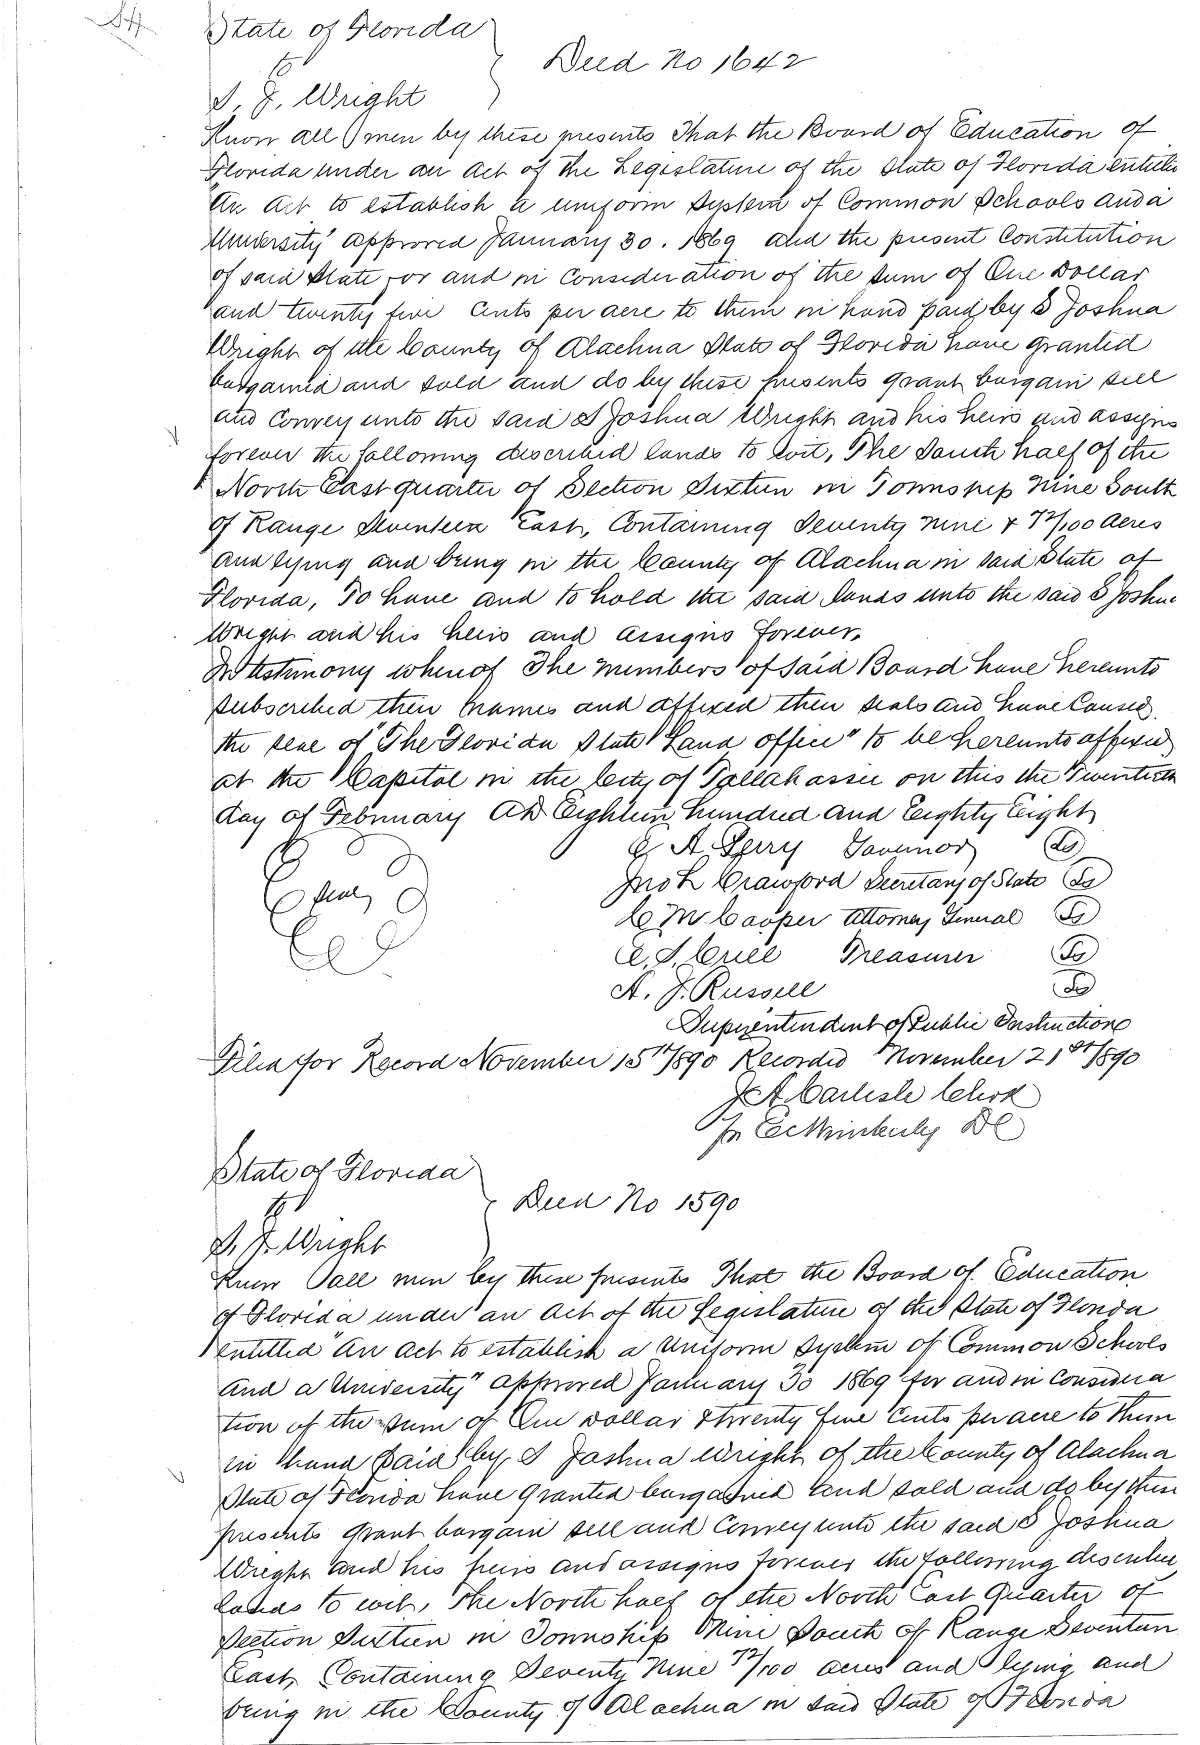 54
State of Florida
to
Deed No 1642
S, J, Wright
Know all men by these presents That the Board of Education of
Florida under an act of the Legislature of the State of Florida entitled
"An Act to establish a uniform System of Common Schools and a
University" approved January 30. 1869 and the present Constitution
of said State for and in consideration of the sum of One Dollar
and twenty five Cents per acre to them in hand paid by S Joshua
Wright of the County of Alachua State of Florida have granted
bargained and sold and do by these presents grant bargain sell
and convey unto the said S Joshua Wright and his heirs and assigns
forever the following described lands to wit, The South half of the
North East quarter of Section Sixteen in Township Nine South
of Range Seventeen East, Containing Seventy nine & 72/100 Acres
and lying and being in the County of Alachua in said State of
Florida, To have and to hold the said lands unto the said S Joshua
Wright and his heirs and assigns forever.
In testimony whereof The members of said Board have hereunto
subscribed their names and affixed their seals and have Caused
the seal of "The Florida State Land office" to be hereunto affixed
at the Capitol in the City of Tallahassee on this the Twentieth
day of February AD Eighteen hundred and Eighty Eight
E A Perry Governor LS
Seal
Jno L Crawford Secretary of State LS
C M Cooper Attorney General LS
E. S. Crill Treasurer LS
A. J. Russell LS
Superintendent of Public Instruction
Filed for Record November 15th/890 Recorded November 21st/890
J A Carlisle Clerk
DC
State of Florida
to
Deed No 1590
S. J. Wright
Know all men by these presents That the Board of Education
of Florida under an Act of the Legislature of the State of Florida
entitled "An Act to establish a Uniform System of Common Schools
and a University" approved January 30 1869 for and in considera
tion of the sum of One Dollar & twenty five Cents per acre to them
in hand paid by S Joshua Wright of the County of Alachua
State of Florida have granted bargained and sold and do by these
presents grant bargain sell and convey unto the said S Joshua
Wright and his heirs and assigns forever the following described
lands to wit, The North half of the North East Quarter of
Section Sixteen in Township Nine South of Range Seventeen
East, Containing Seventy Nine 72/100 acres and lying and
being in the County of Alachua in said State of Florida